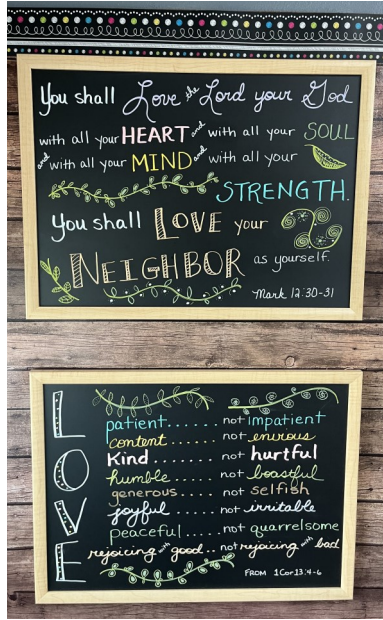 You shall Love the Lord your God
with all your HEART and with all your SOUL
and with all your MIND and with all your
STRENGTH.
You shall LOVE your
NEIGHBOR as yourself.
Mark 12:30-31
LOVE
patient...... not impatient
content...... not envious
Kind....... not hurtful
humble..... not boastful
generous.... not selfish
joyful..... not irritable
peaceful.... not quarrelsome
rejoicing with good.. not rejoicing with bad
FROM 1Cor13:4-6